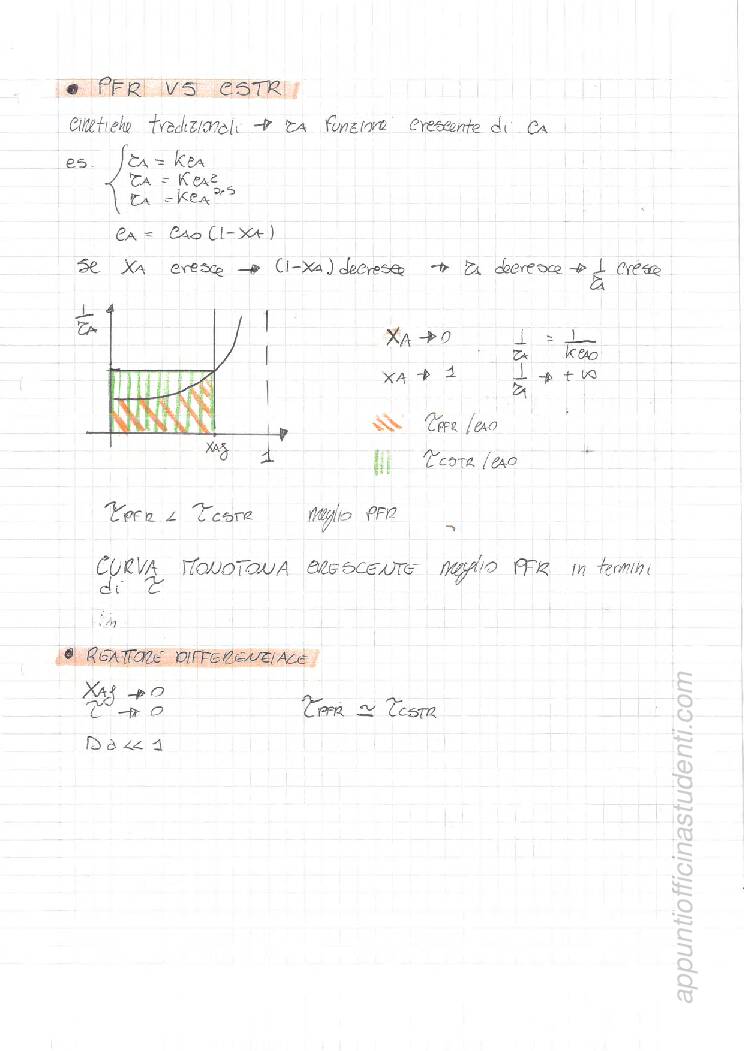 • PFR VS CSTR
cinetiche tradizionali → rA funzione crescente di cA
es. { rA = kcA
rA = kcA²
rA = kcA^2,5
cA = cA0 (1-XA)
se XA cresce → (1-XA) decresce → rA decresce → 1/rA cresce
1/rA
XA → 0 1/rA = 1/kcA0
XA → 1 1/rA → +∞
τPFR/cA0
XAf 1
τCSTR/cA0
τPFR < τCSTR meglio PFR
CURVA MONOTONA CRESCENTE meglio PFR in termini
di τ
• REATTORE DIFFERENZIALE
XAf → 0
τ → 0 τPFR ≃ τCSTR
Da << 1
appuntiofficinastudenti.com